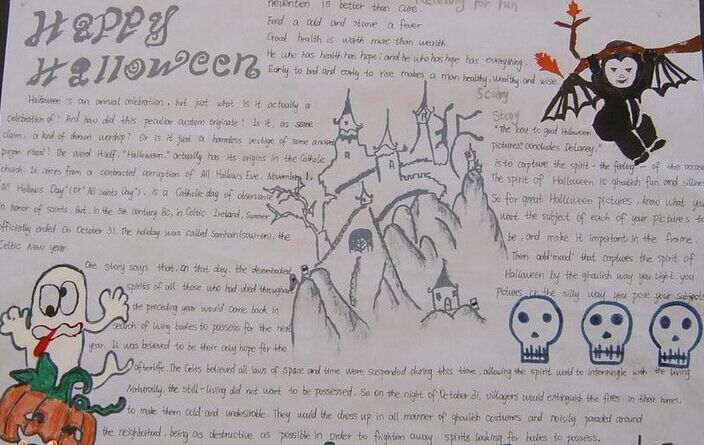 Happy
Halloween
Prevention is better than cure.
Reading for fun
Feed a cold and starve a fever
Good health is worth more than wealth.
He who has health has hope; and he who has hope has everything.
Early to bed and early to rise makes a man healthy, wealthy, and wise.
Halloween is an annual celebration, but just what is it actually a
celebration of? And how did this peculiar custom originate? Is it, as some
claim, a kind of demon worship? Or is it just a harmless vestige of some ancient
pagan ritual? The word itself, "Halloween," actually has its origins in the Catholic
church. It comes from a contracted corruption of All Hallows Eve. November 1,
"All Hallows Day" (or "All Saints Day"), is a Catholic day of observance
in honor of saints. But, in the 5th century BC, in Celtic Ireland, summer
officially ended on October 31. The holiday was called Samhain (sow-en), the
Celtic New year.
One story says that, on that day, the disembodied
spirits of all those who had died throughout
the preceding year would come back in
search of living bodies to possess for the next
year. It was believed to be their only hope for the
afterlife. The Celts believed all laws of space and time were suspended during this time, allowing the spirit world to intermingle with the living
Naturally, the still-living did not want to be possessed. So on the night of October 31, villagers would extinguish the fires in their homes,
to make them cold and undesirable. They would the dress up in all manner of ghoulish costumes and noisily paraded around
the neighborhood, being as destructive as possible in order to frighten away spirits looking for bodies to possess.
Scary
Story
"The key to good Halloween
pictures," concludes DeLaney,
is to capture the spirit - the feeling - of the occasion
The spirit of Halloween is ghoulish fun and silliness
So for great Halloween pictures, know what you
want the subject of each of your pictures to
be, and make it important in the frame.
Then add "mood" that captures the spirit of
Halloween by the ghoulish way you light you
pictures or the silly way you pose your subjects